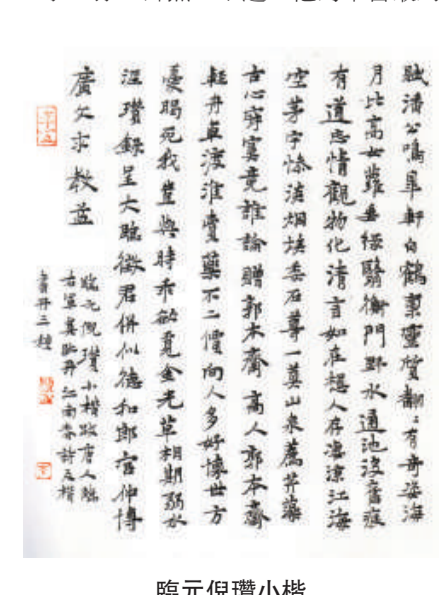 賦潘公鳴皐軒白鶴稟靈質翩〻有奇姿海
月比高女蘿垂綠翳衡門野水通池沒舊痕
有道忘情觀物化清言如在穏人存凄涼江海
空茅宇慘淡烟埃委石尊一奠山泉薦芹藻
古心寂寞竟誰論贈郭本齋高人郭本齋
輕舟卓渡淮賣藥不二價向人多好懷世方
憂賜死我豈與時乖欲覓金光草相期弱水
涯瓚錄呈大臨徵君併似德和郎官仲博
廣文求教益
臨元倪瓚小楷跋唐人臨
右軍真跡并江南春詩及楷
書
三種
臨元倪瓚小楷